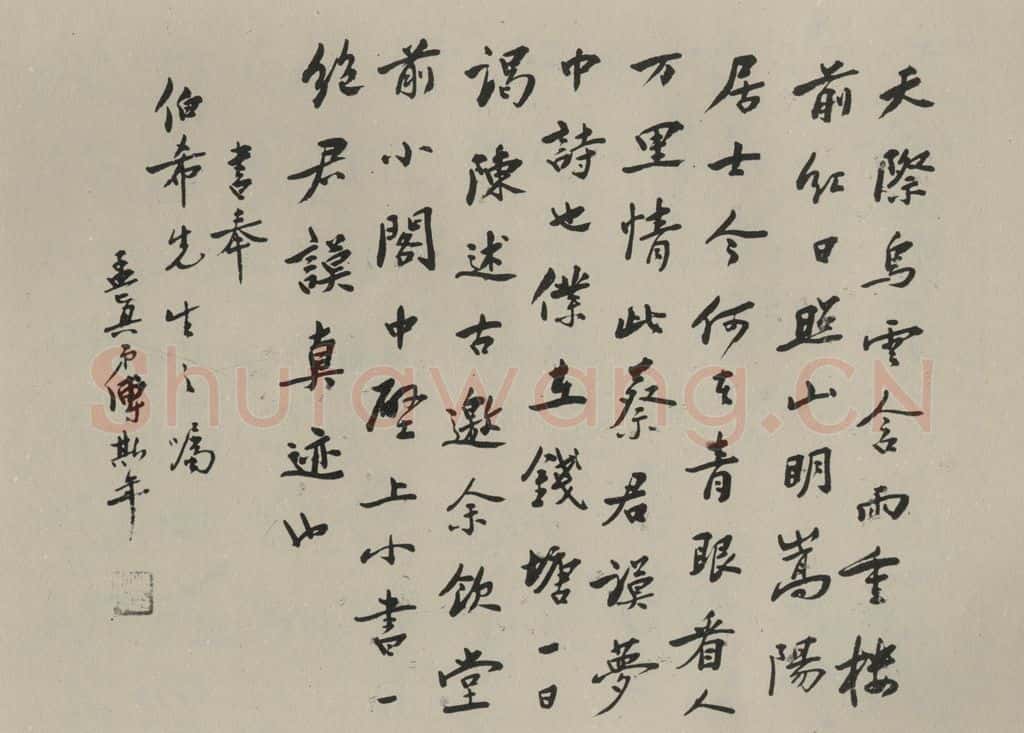 天際烏雲含雨重樓
前紅日照山明嵩陽
居士今何在青眼看人
万里情此蔡君謨夢
中詩也僕在錢塘一日
謁陳述古邀余飲堂
前小閣中壁上小書一
絶君謨真迹也
書奉
伯希先生之嘱
孟真弟傅斯年
Shufawang.CN